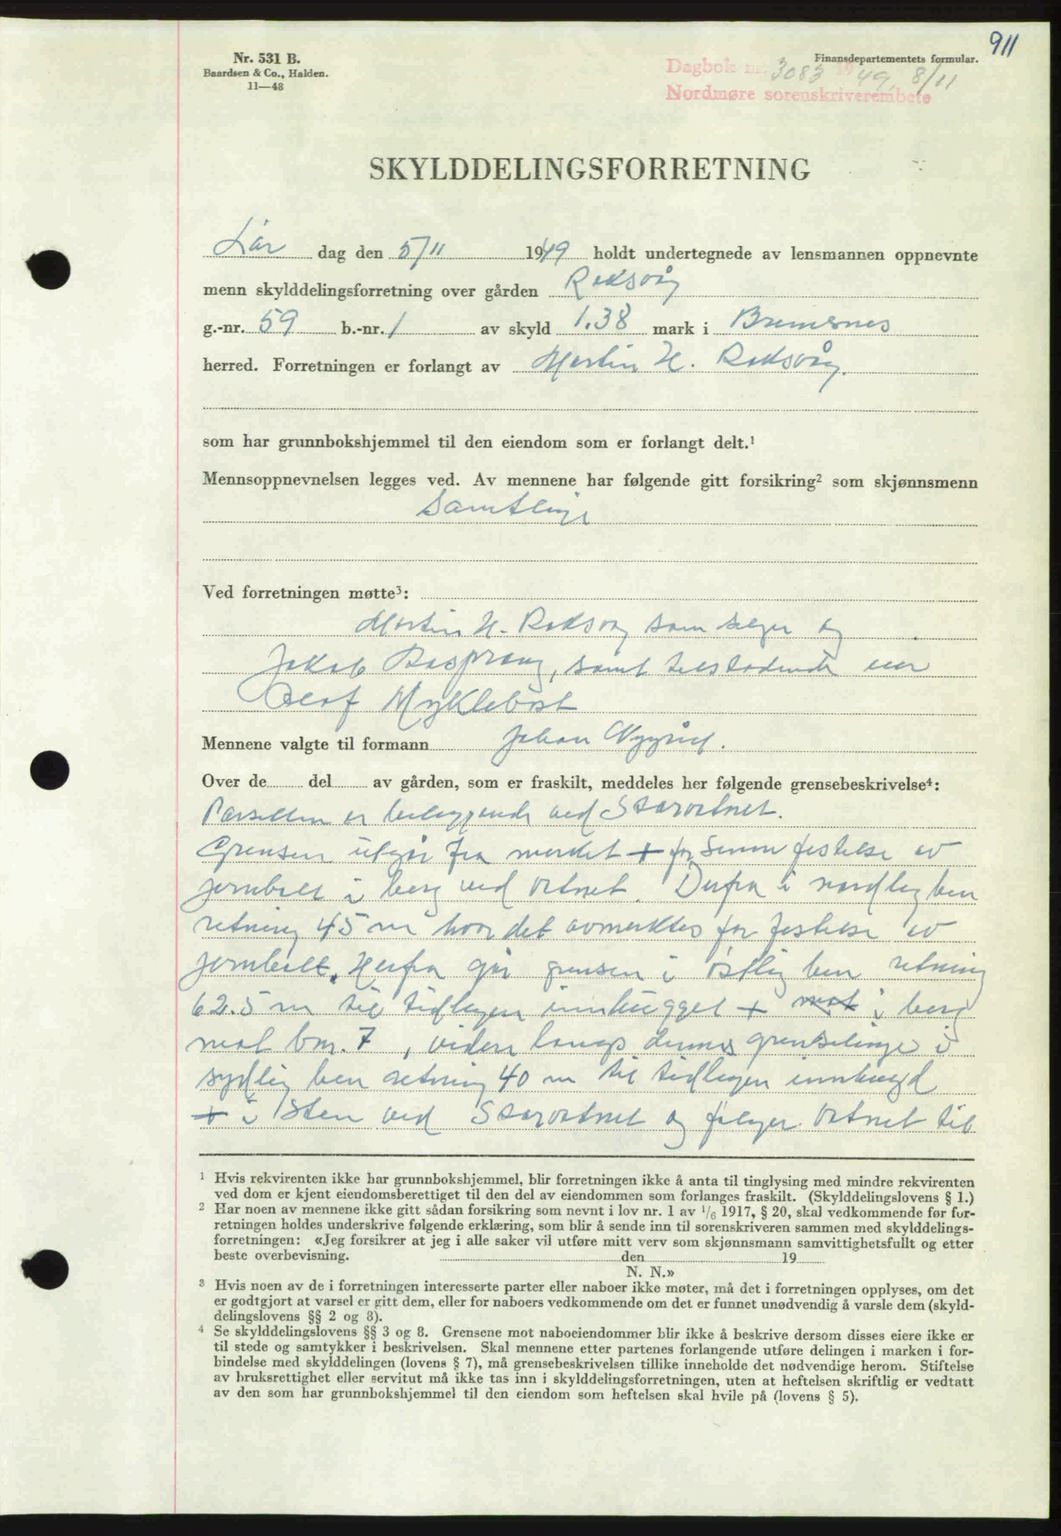 911
Nr. 531 B.
Baardsen & Co., Halden.
11—48
Finansdepartementets formular.
Dagbok nr. 3083 1949, 8/11
Nordmøre sorenskriverembete
SKYLDDELINGSFORRETNING
Lør dag den 5/11 1949 holdt undertegnede av lensmannen oppnevnte
menn skylddelingsforretning over gården Roksvåg
g.-nr. 59 b.-nr. 1 av skyld 1.38 mark i Bremsnes
herred. Forretningen er forlangt av Martin H. Roksvåg.
som har grunnbokshjemmel til den eiendom som er forlangt delt.¹
Mennsoppnevnelsen legges ved. Av mennene har følgende gitt forsikring² som skjønnsmenn
Samtlige
Ved forretningen møtte³:
Martin H. Roksvåg som selger og
Jakob, samt tilstedende
Olaf Myklebost
Mennene valgte til formann Johan
Over de del av gården, som er fraskilt, meddeles her følgende grensebeskrivelse⁴:
Parsellen er beliggende ved
Grensen utgår fra merket + for senere festelse av
jernbolt i berg ved vatnet. Derfra i nordlig ben
retning 45 m hvor det avmerktes for festelse av
jernbolt. Herfra går grensen i østlig ben retning
62.5 m til tidligere innhugget + i berg
mot bnr. 7, videre langs dennes grenselinje i
sydlig ben retning 40 m til tidligere innhugd
+ i sten ved og følger vatnet til
¹ Hvis rekvirenten ikke har grunnbokshjemmel, blir forretningen ikke å anta til tinglysing med mindre rekvirenten
ved dom er kjent eiendomsberettiget til den del av eiendommen som forlanges fraskilt. (Skylddelingslovens § 1.)
² Har noen av mennene ikke gitt sådan forsikring som nevnt i lov nr. 1 av ¹/₆ 1917, § 20, skal vedkommende før for-
retningen holdes underskrive følgende erklæring, som blir å sende inn til sorenskriveren sammen med skylddelings-
forretningen: «Jeg forsikrer at jeg i alle saker vil utføre mitt verv som skjønnsmann samvittighetsfullt og etter
beste overbevisning. den 19
N. N.»
³ Hvis noen av de i forretningen interesserte parter eller naboer ikke møter, må det i forretningen opplyses, om det
er godtgjort at varsel er gitt dem, eller for naboers vedkommende om det er funnet unødvendig å varsle dem (skyld-
delingslovens §§ 2 og 3).
⁴ Se skylddelingslovens §§ 3 og 8. Grensene mot naboeiendommer blir ikke å beskrive dersom disses eiere ikke er
til stede og samtykker i beskrivelsen. Skal mennene etter partenes forlangende utføre delingen i marken i for-
bindelse med skylddelingen (lovens § 7), må grensebeskrivelsen tillike inneholde det nødvendige herom. Stiftelse
av bruksrettighet eller servitut må ikke tas inn i skylddelingsforretningen, uten at heftelsen skriftlig er vedtatt
av den som har grunnbokshjemmel til den eiendom som heftelsen skal hvile på (lovens § 5).